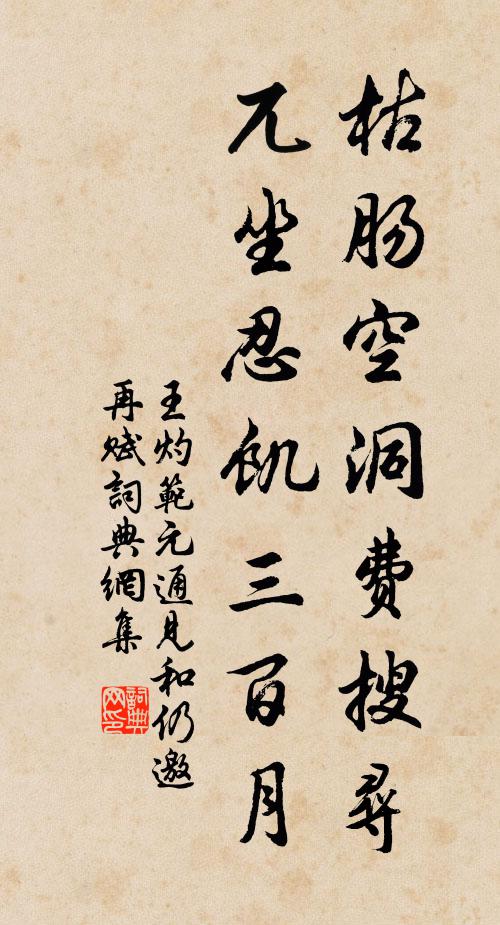 枯肠空洞費搜尋
兀坐忍飢三百月
王灼範元通見和仍邀
再賦詞典網集
詞典
网印